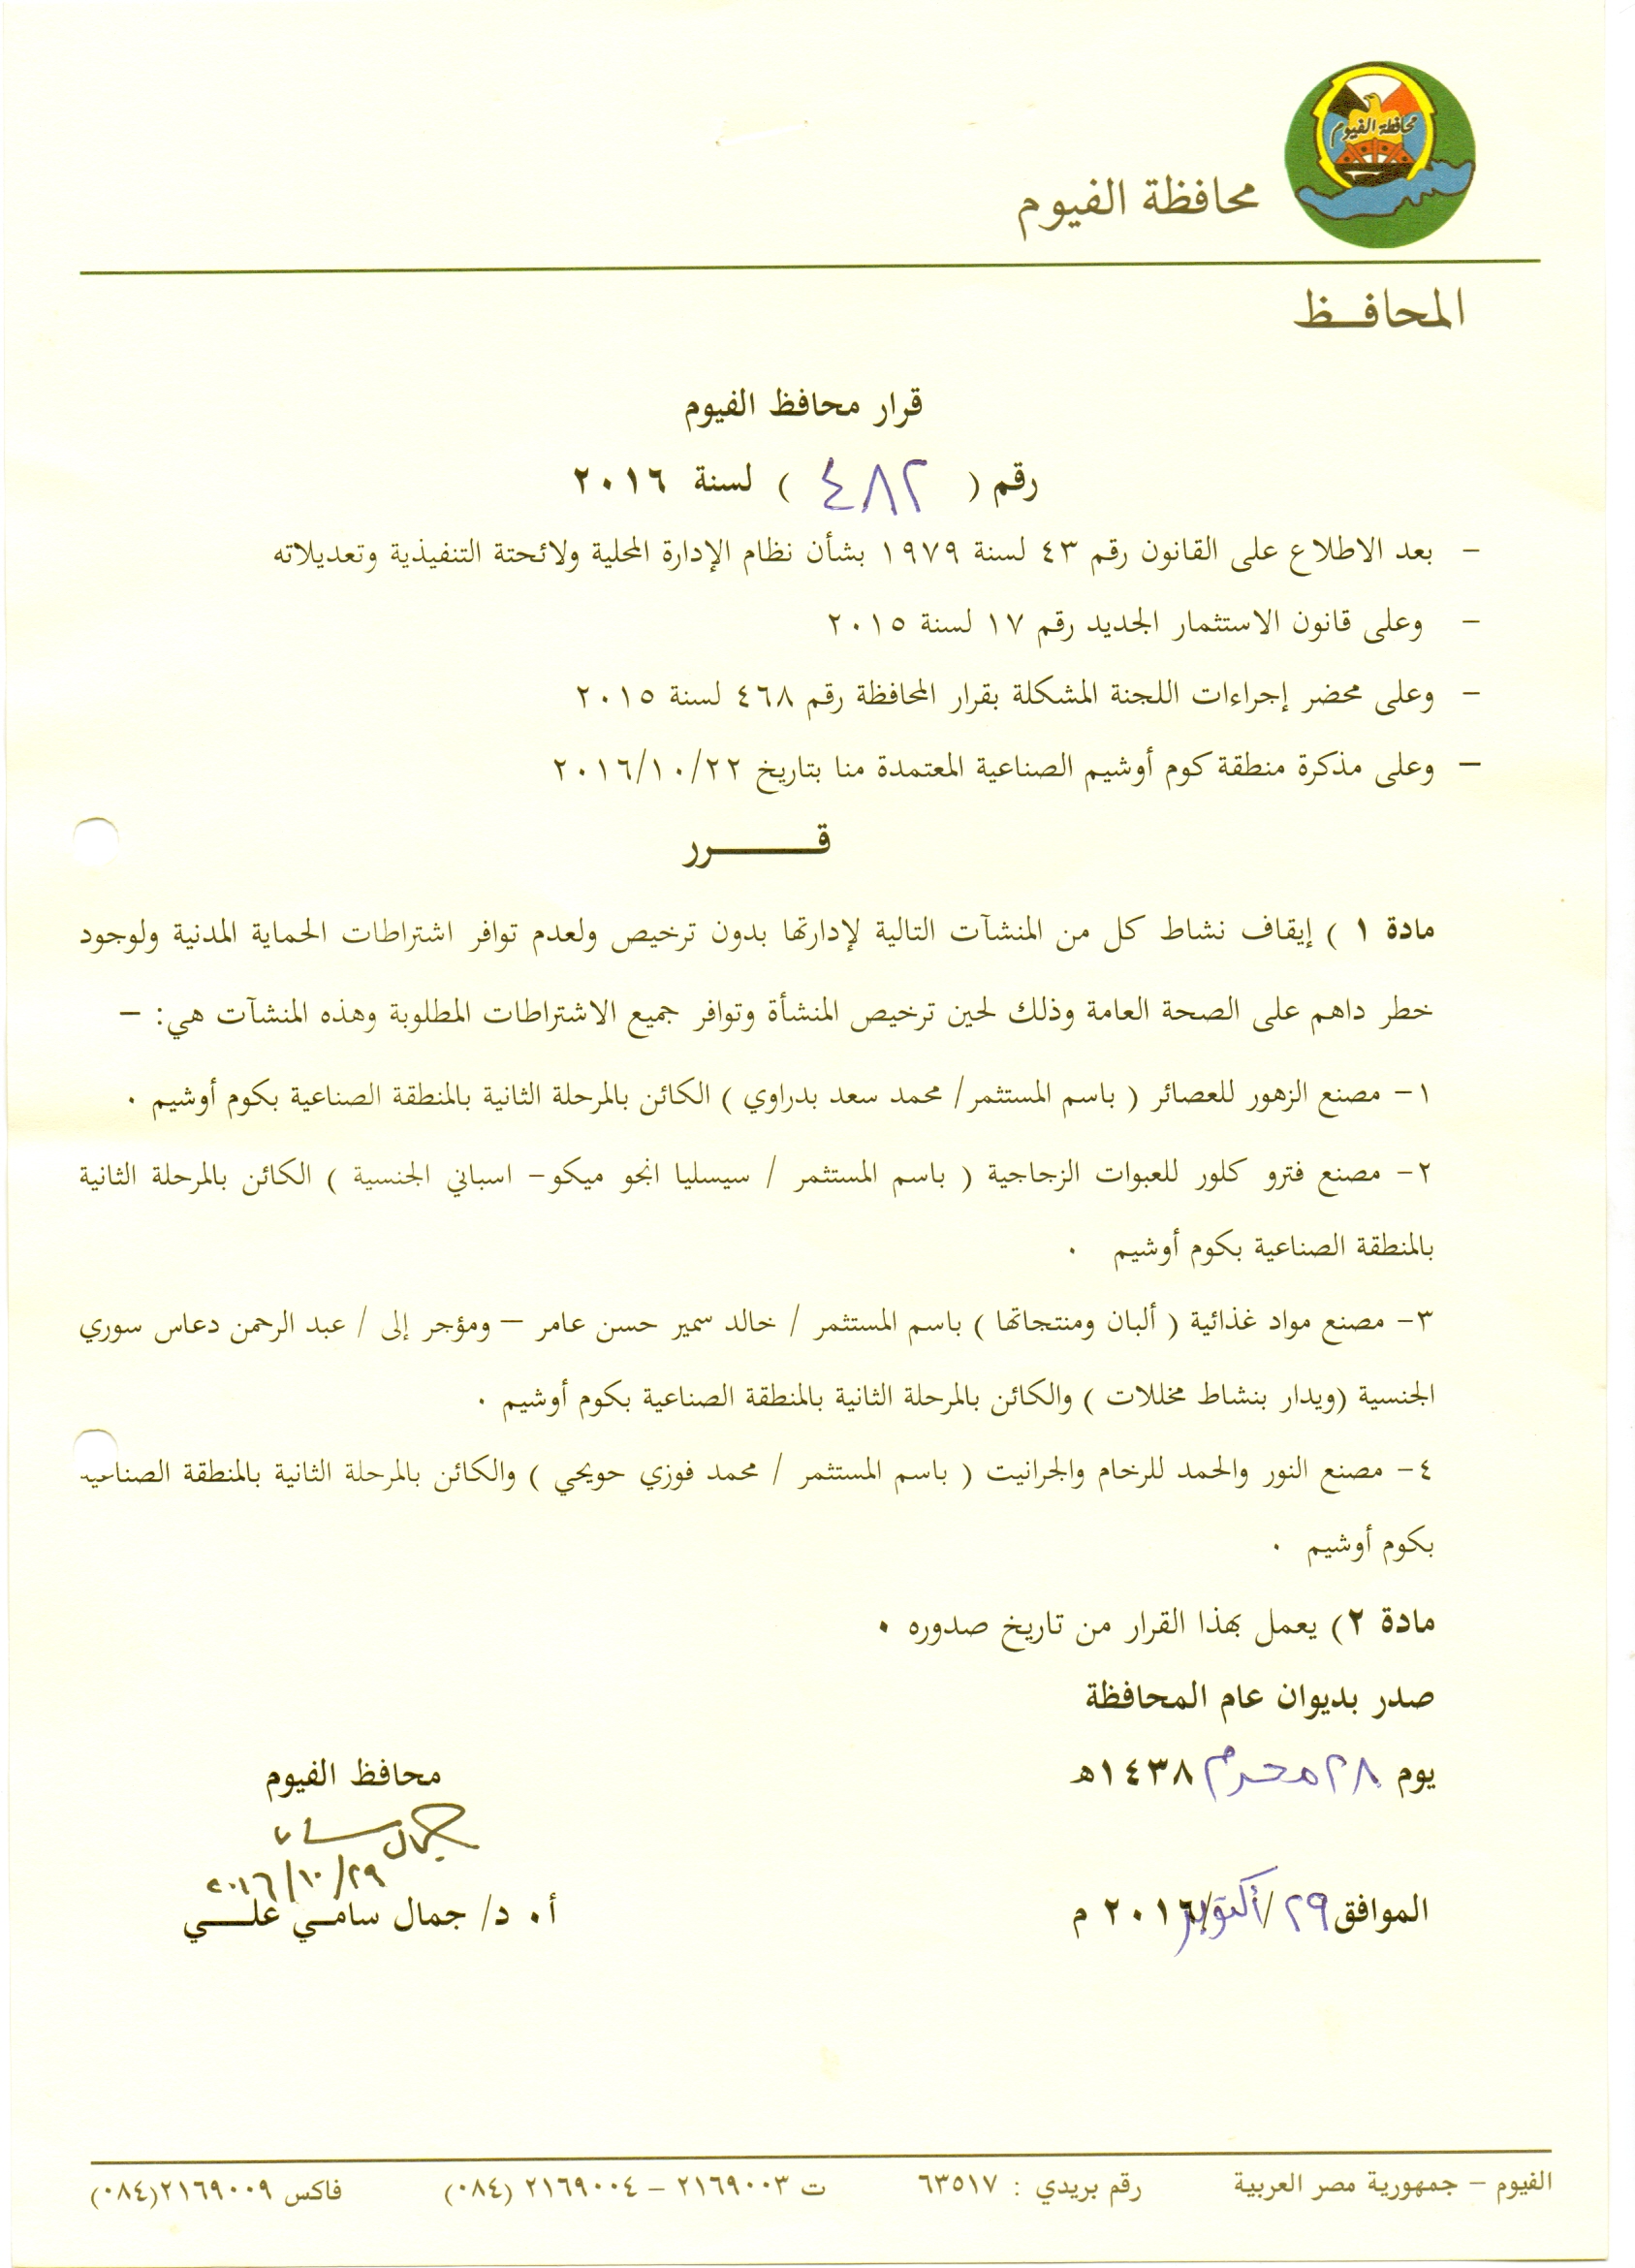 محافظة الفيوم
محافظة الفيوم
المحافـــظ
قرار محافظ الفيوم
رقم ( ٤٨٢ ) لسنة ٢٠١٦
– بعد الاطلاع على القانون رقم ٤٣ لسنة ١٩٧٩ بشأن نظام الإدارة المحلية ولائحتة التنفيذية وتعديلاته
– وعلى قانون الاستثمار الجديد رقم ١٧ لسنة ٢٠١٥
– وعلى محضر إجراءات اللجنة المشكلة بقرار المحافظة رقم ٤٦٨ لسنة ٢٠١٥
– وعلى مذكرة منطقة كوم أوشيم الصناعية المعتمدة منا بتاريخ ٢٠١٦/١٠/٢٢
قـــــــرر
مادة ١ ) إيقاف نشاط كل من المنشآت التالية لإدارتها بدون ترخيص ولعدم توافر اشتراطات الحماية المدنية ولوجود
خطر داهم على الصحة العامة وذلك لحين ترخيص المنشأة وتوافر جميع الاشتراطات المطلوبة وهذه المنشآت هي: –
١– مصنع الزهور للعصائر ( باسم المستثمر/ محمد سعد بدراوي ) الكائن بالمرحلة الثانية بالمنطقة الصناعية بكوم أوشيم ٠
٢– مصنع فترو كلور للعبوات الزجاجية ( باسم المستثمر / سيسليا انجو ميكو– اسباني الجنسية ) الكائن بالمرحلة الثانية
بالمنطقة الصناعية بكوم أوشيم ٠
٣– مصنع مواد غذائية ( ألبان ومنتجاتها ) باسم المستثمر / خالد سمير حسن عامر – ومؤجر إلى / عبد الرحمن دعاس سوري
الجنسية (ويدار بنشاط مخللات ) والكائن بالمرحلة الثانية بالمنطقة الصناعية بكوم أوشيم ٠
٤– مصنع النور والحمد للرخام والجرانيت ( باسم المستثمر / محمد فوزي حويحي ) والكائن بالمرحلة الثانية بالمنطقة الصناعية
بكوم أوشيم ٠
مادة ٢) يعمل بهذا القرار من تاريخ صدوره ٠
صدر بديوان عام المحافظة
يوم ٢٨ محرم ١٤٣٨هـ
محافظ الفيوم
جمال سامى
٢٠١٦/١٠/٢٩
الموافق ٢٩ /أكتوبر/ ٢٠١٦ م
أ٠ د/ جمال سامـي علـــي
الفيوم – جمهورية مصر العربية رقم بريدي : ٦٣٥١٧ ت ٢١٦٩٠٠٣ – ٢١٦٩٠٠٤ (٠٨٤) فاكس ٢١٦٩٠٠٩(٠٨٤)